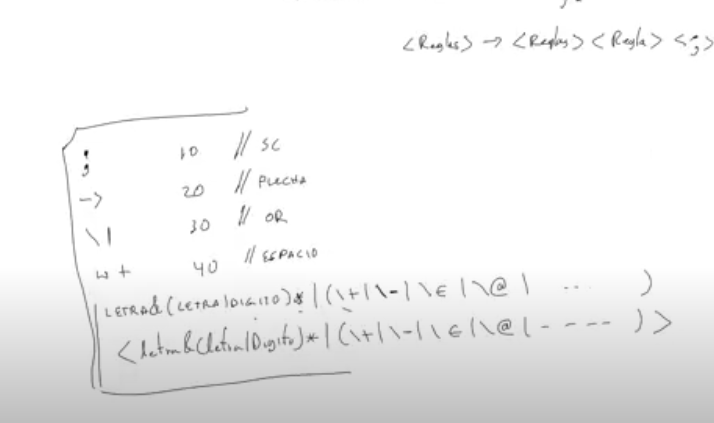 <Reglas> → <Reglas> <Regla> <;>
; 10 // SC
-> 20 // FLECHA
\| 30 // OR
w+ 40 // ESPACIO
LETRA&(LETRA|DIGITO)*|(\+|\-|\∈|\@| ... )
<letra&(letra|Digito)*|(\+|\-|\∈|\@|- - - - )>